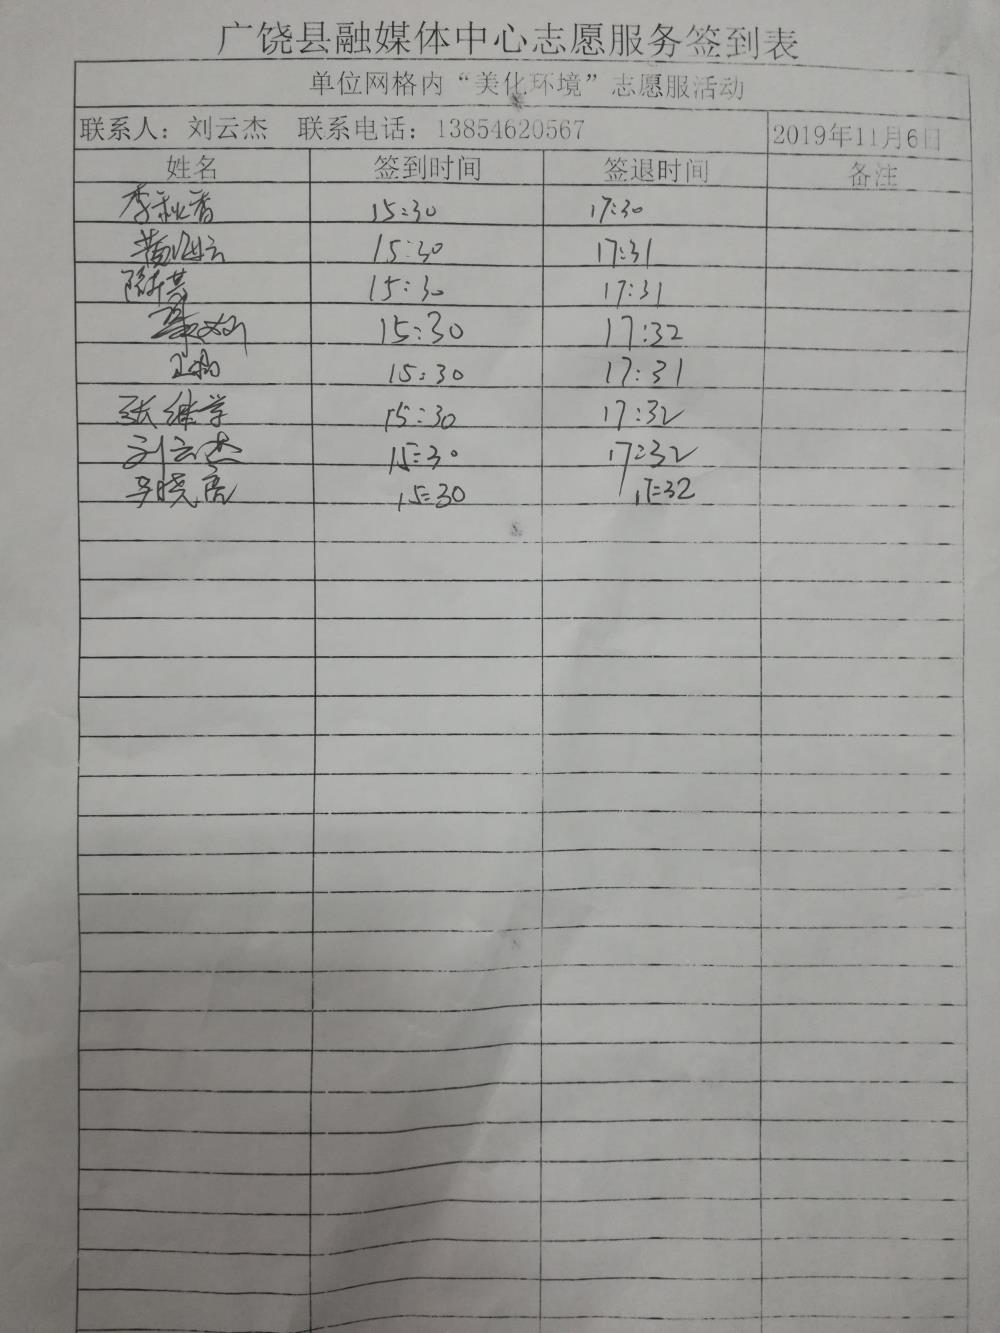 广饶县融媒体中心志愿服务签到表
单位网格内“美化环境”志愿服活动
联系人：刘云杰 联系电话：13854620567 2019年11月6日
姓名 签到时间 签退时间 备注
李秋香 15:30 17:30
15:30 17:31
15:30 17:31
15:30 17:32
15:30 17:31
张继学 15:30 17:32
刘云杰 15:30 17:32
马晓亮 15:30 17:32